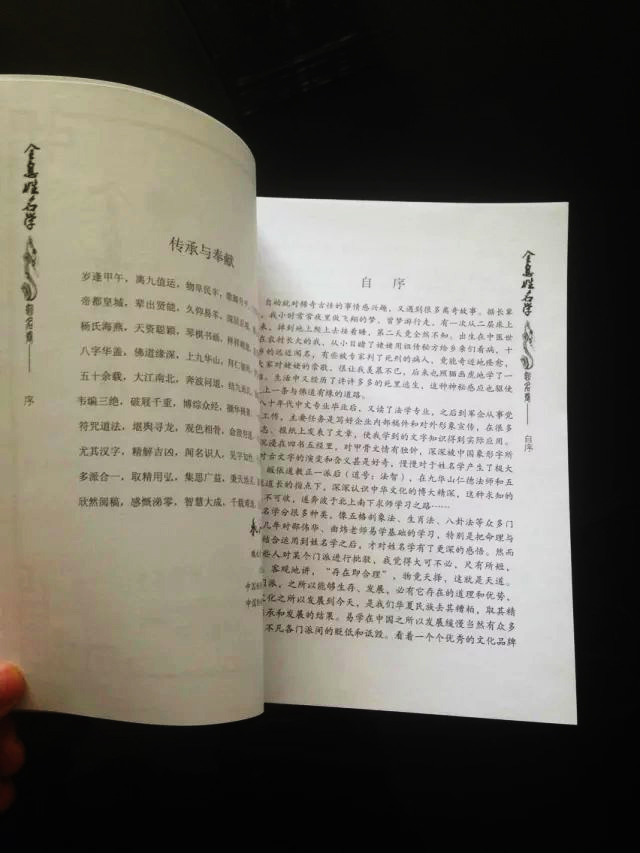 全息姓名学
序
传承与奉献
岁逢甲午，离九值运，物阜民丰，歌舞升平
帝都皇城，辈出贤能，久仰易学，深居
杨氏海燕，天资聪颖，琴棋书画，样样
八字华盖，佛道缘深，上九华山，拜仁
五十余载，大江南北，奔波问道，结九
韦编三绝，破屣千重，博综众经，撷华
符咒道法，堪舆寻龙，观色相骨，金
尤其汉字，精解吉凶，闻名识人，见字
多派合一，取精用弘，集思广益，秉天
欣然阅稿，感慨涕零，智慧大成，千载
中国
中国
全息姓名学
自序
自序
自幼就对稀奇古怪的事情感兴趣，又遇到很多离奇故事。据长辈
，我小时常常夜里做飞翔的梦、曾梦游行走，有一次从二层床上
来，掉到地上爬上去接着睡，第二天竟全然不知。出生在中医世
在农村长大的我，从小目睹了姥姥用祖传秘方给乡亲们看病，十
乡的远近闻名，有些被专家判了死刑的病人，竟能奇迹地痊愈，
大家对姥姥的崇敬，很让我羡慕不已，后来也照猫画虎地学了一
。生活中又经历了许许多多的死里逃生，这种神秘感应也驱使
上一条与佛道有缘的道路。
十年代中文专业毕业后，又读了法学专业，之后到军企从事党
工作，主要任务是写好企业内部稿件和对外形象宣传，在很多
志、报纸上发表了文章，使我学到的文字知识得到实际应用。
沉浸在四书五经里，对甲骨文情有独钟，深深被中国象形字所
对古文字的演变和含义甚是好奇，慢慢对于姓名学产生了极大
皈依道教正一派后（道号：法智），在九华山仁德法师和五
道长的指点下，深深认识中华文化的博大精深，这种求知的
不可收，遂奔波于北上南下求师学习之路……
名学分很多种类，像五格剖象法、生肖法、八卦法等众多门
几年对邵伟华、曲炜老师易学基础的学习，特别是把命理与
结合运用到姓名学之后，才对姓名学有了更深的感悟。然而
些人对某个门派进行批驳，我觉得大可不必，尺有所短，
。客观地讲，“存在即合理”，物竞天择，这就是天道。
门派，之所以能够生存、发展，必有它存在的道理和优势，
文化之所以发展到今天，是我们华夏民族去其糟粕，取其精
承和发展的结果。易学在中国之所以发展缓慢当然有众多
不凡各门派间的贬低和诋毁。看着一个个优秀的文化品牌